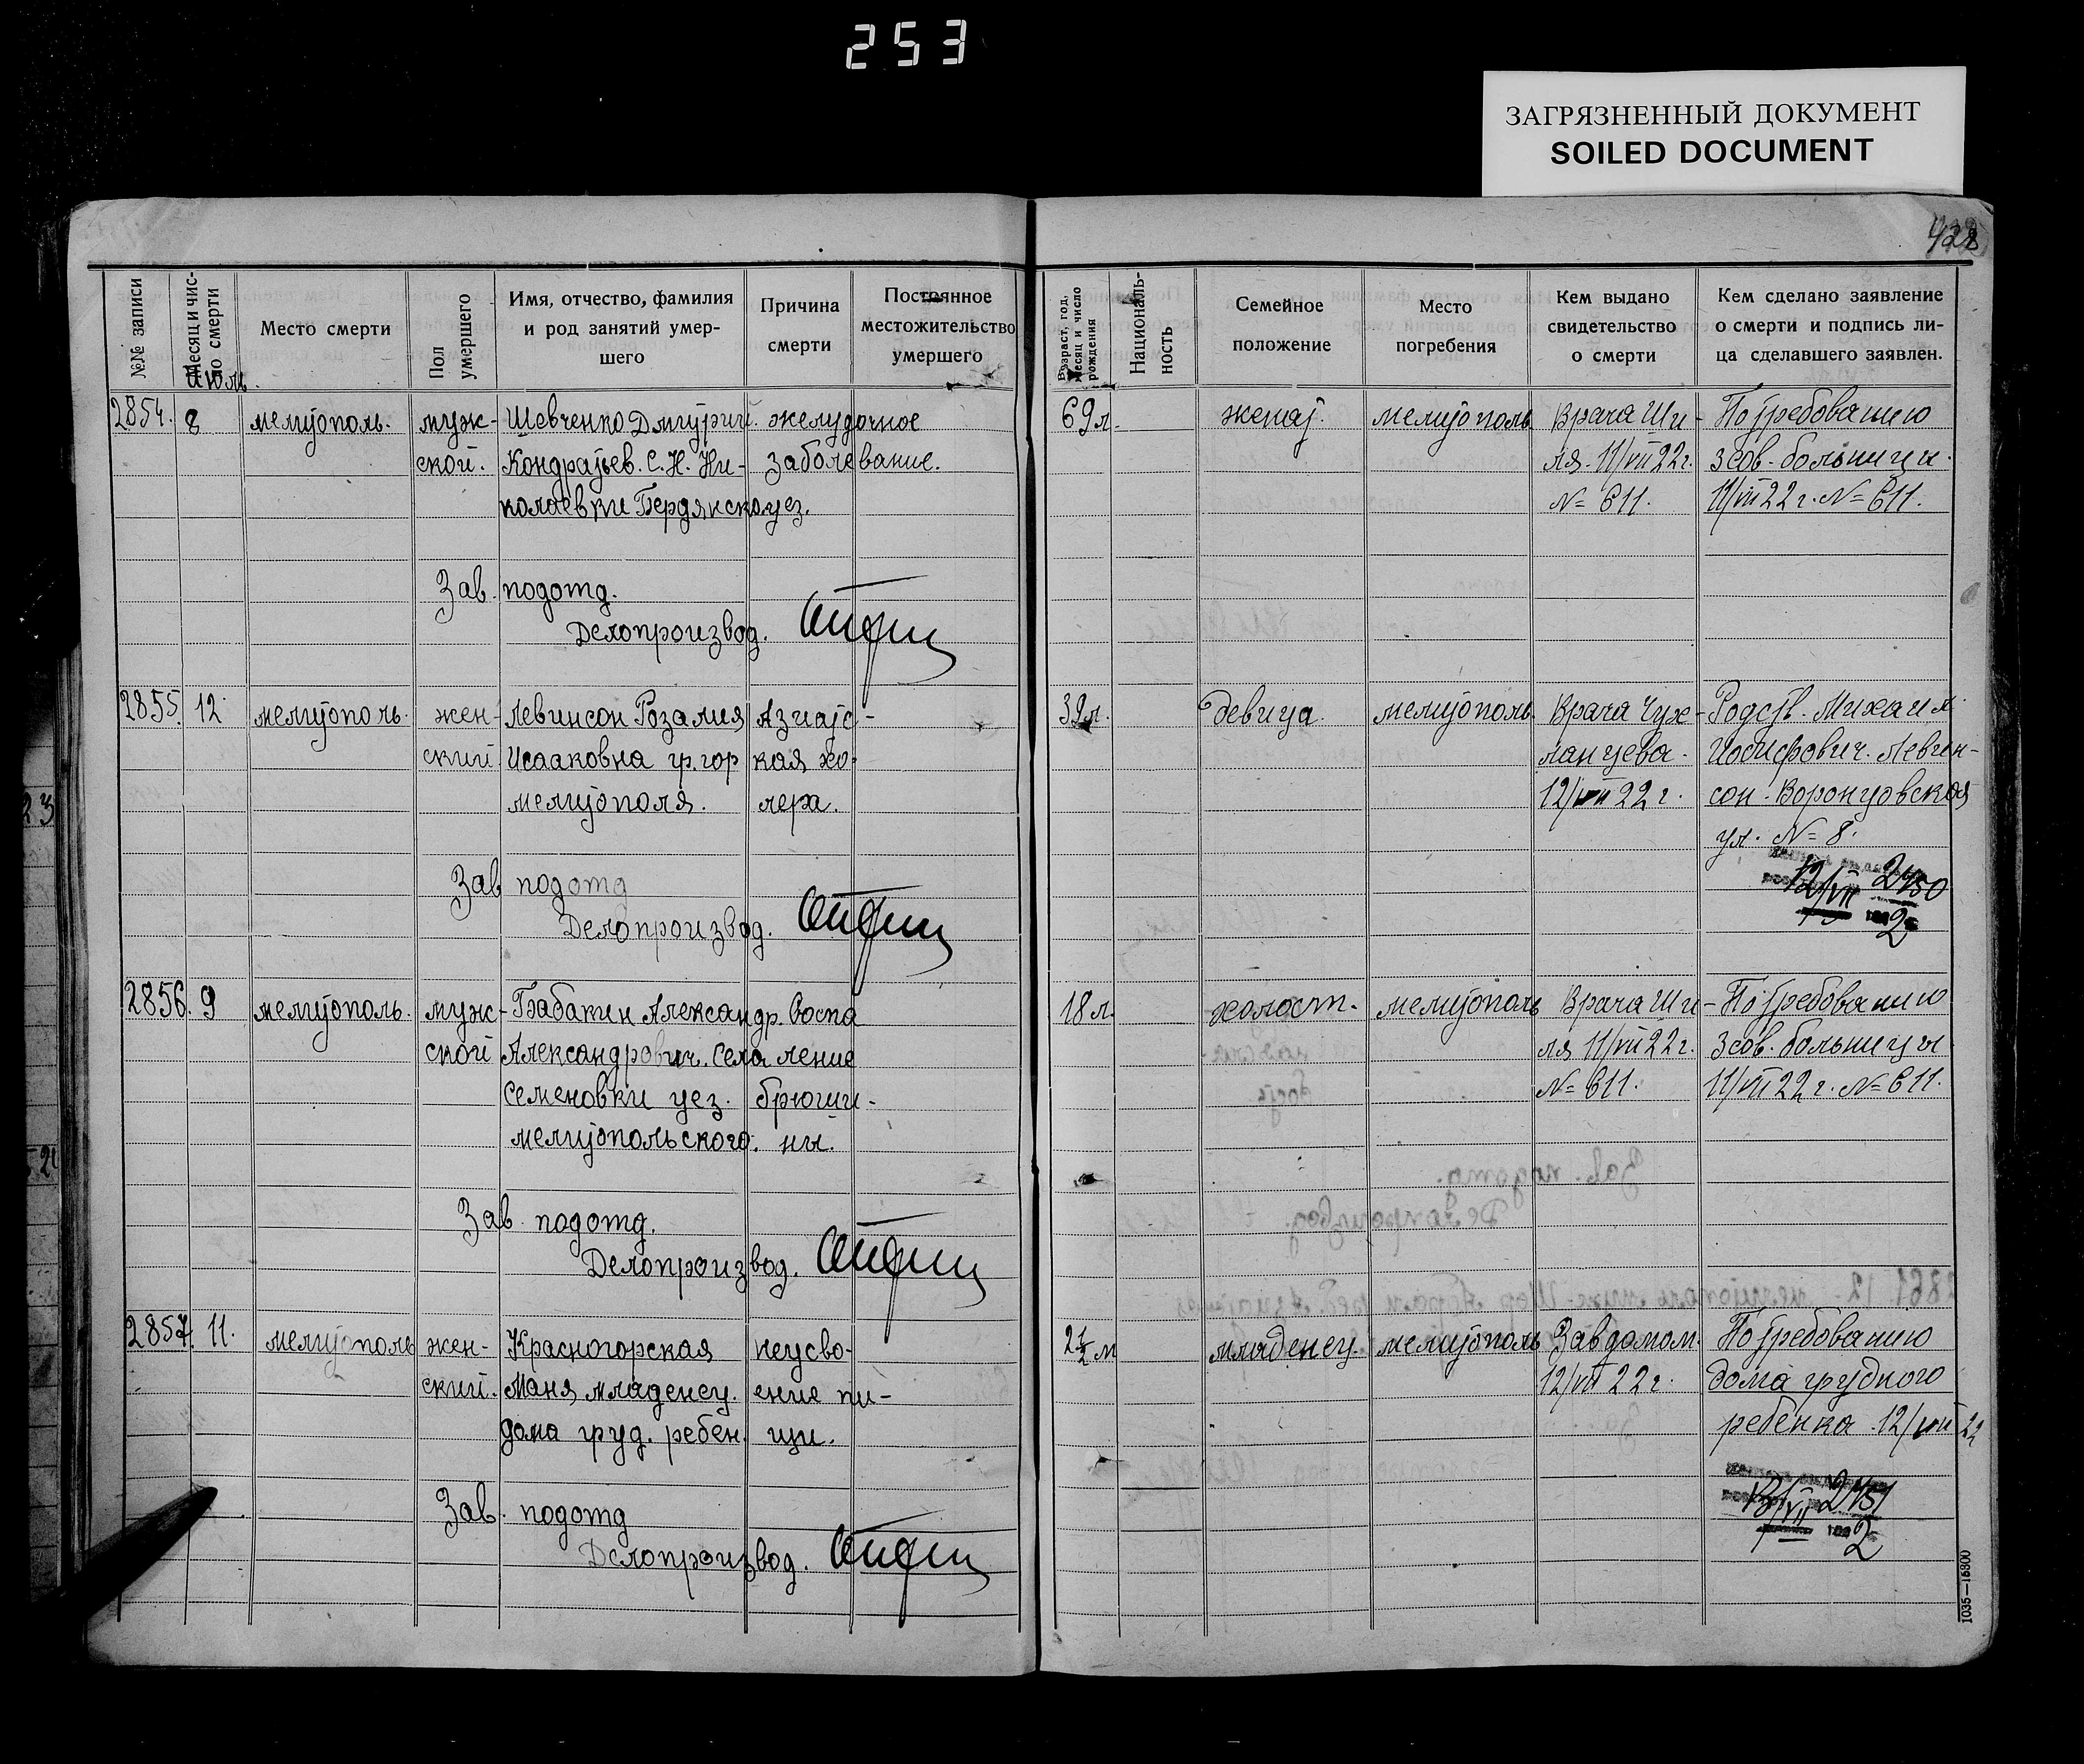 253
ЗАГРЯЗНЕННЫЙ ДОКУМЕНТ
SOILED DOCUMENT
428
№№ записи
Месяц и чис-
ло смерти
Июль.
Место смерти
Пол
умершего
Имя, отчество, фамилия
и род занятий умер-
шего
Причина
смерти
Постоянное
местожительство
умершего
Возраст, год,
месяц и число
рождения
Националь-
ность
Семейное
положение
Место
погребения
Кем выдано
свидетельство
о смерти
Кем сделано заявление
о смерти и подпись ли-
ца сделавшего заявлен.
2854. 8 мелитополь. муж- Шевченко Дмитрий. желудочное 69 л. женат. мелитополь. Врача Ши- По требованию
ской. Кондратьев. С. Н. Ни- заболевание. ля. 11/VII 22 г. 3 сов. больницы.
колаевки Бердянск. уез. № 611. 11/VII 22 г. № 611.
Зав. подотд.
Делопроизвод.
2855. 12 мелитополь. жен- Левинсон Розалия Азиатс- 39 л. девица. мелитополь. Врача Чух- Родств. Михаил.
ский Исааковна гр. гор кая хо- ланцева. Иосифович. Левин-
мелитополя. лера. 12/VII 22 г. сон. Воронцовская
ул. № 8.
12/VII 2450
2
Зав подотд
Делопроизвод.
2856. 9 мелитополь. муж- Бабакин Александр. Воспа 18 л. холост. мелитополь Врача Ши- По требованию
ской Александрович. села ление ля 11/VII 22 г. 3 сов. больницы
Семеновки уез. брюши- № 611. 11/VII 22 г. № 611.
мелитопольского. ны.
Зав. подотд.
Делопроизвод.
2857. 11. мелитополь жен- Красногорская неусво- 2 1/2 м младенец. мелитополь Зав домом. По требованию
ский. Маня, младенец. ение пи- 12/VII 22 г. дома грудного
дома груд. ребен. щи. ребенка. 12/VII 22
2451
2
Зав. подотд
Делопроизвод.
1035—16800